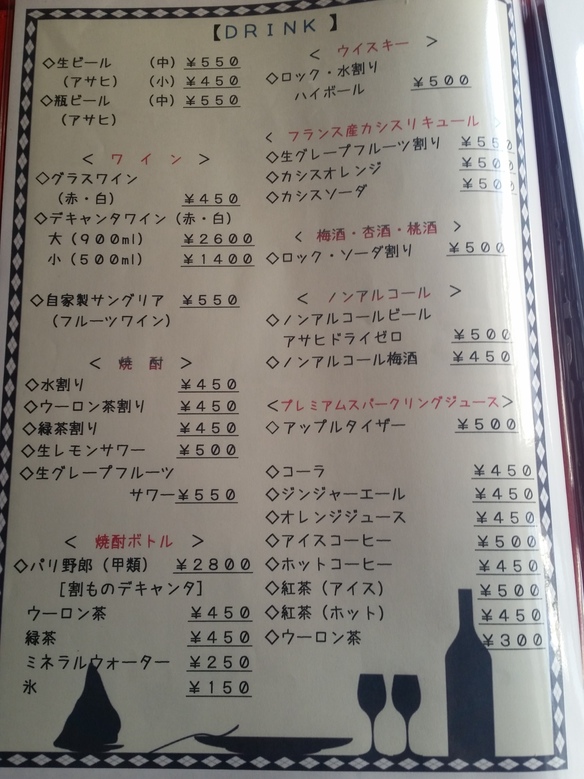 【DRINK】
◇生ビール (中) ¥550
(アサヒ) (小) ¥450
◇瓶ビール (中) ¥550
(アサヒ)
< ワイン >
◇グラスワイン
(赤・白) ¥450
◇デキャンタワイン(赤・白)
大(900ml) ¥2600
小(500ml) ¥1400
◇自家製サングリア ¥550
(フルーツワイン)
< 焼酎 >
◇水割り ¥450
◇ウーロン茶割り ¥450
◇緑茶割り ¥450
◇生レモンサワー ¥500
◇生グレープフルーツ
サワー ¥550
< 焼酎ボトル >
◇パリ野郎(甲類) ¥2800
[割ものデキャンタ]
ウーロン茶 ¥450
緑茶 ¥450
ミネラルウォーター ¥250
氷 ¥150
< ウイスキー >
◇ロック・水割り
ハイボール ¥500
< フランス産カシスリキュール >
◇生グレープフルーツ割り ¥550
◇カシスオレンジ ¥500
◇カシスソーダ ¥500
< 梅酒・杏酒・桃酒 >
◇ロック・ソーダ割り ¥500
< ノンアルコール >
◇ノンアルコールビール
アサヒドライゼロ ¥500
◇ノンアルコール梅酒 ¥450
<プレミアムスパークリングジュース>
◇アップルタイザー ¥500
◇コーラ ¥450
◇ジンジャーエール ¥450
◇オレンジジュース ¥450
◇アイスコーヒー ¥500
◇ホットコーヒー ¥450
◇紅茶(アイス) ¥500
◇紅茶(ホット) ¥450
◇ウーロン茶 ¥300